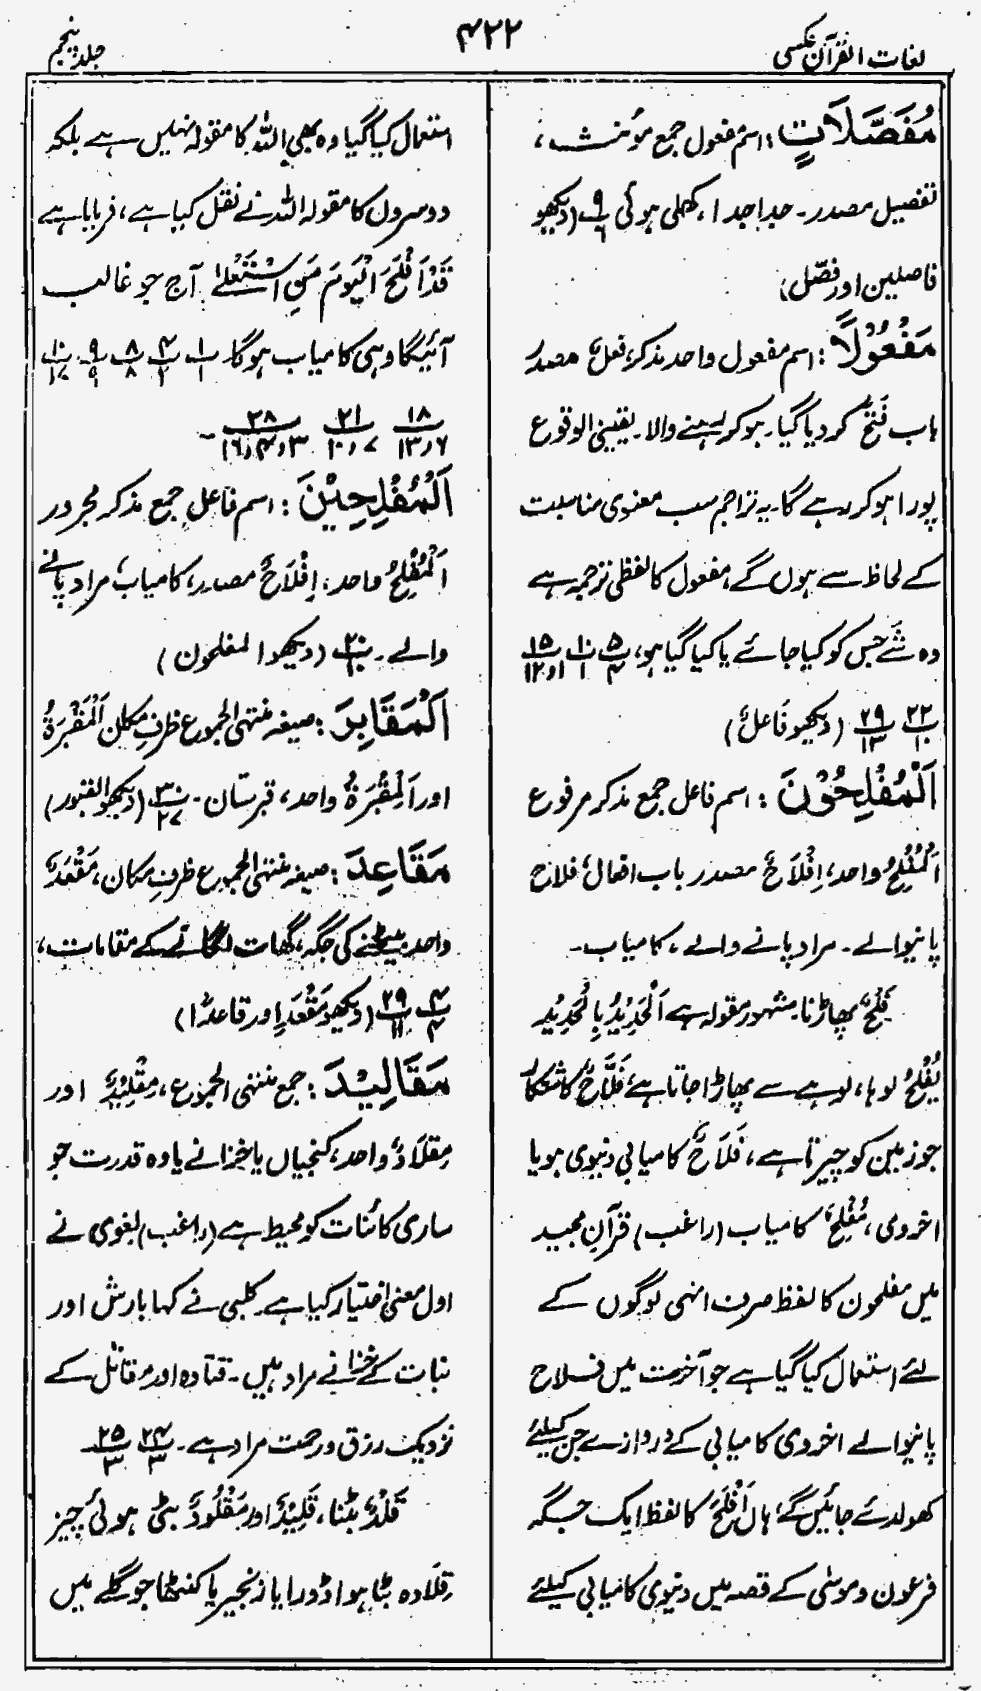 لغات القرآن عکسی
۴۲۲
جلد پنجم
مُفَصَّلَاتٍ: اسم مفعول جمع مؤنث،
تفصیل مصدر۔ جدا جدا، کھلی ہوئی ۹/۶ (دیکھو
فاصلین اور فصّل)
مَفْعُوْلًا: اسم مفعول واحد مذکر، فعلٌ مصدر
باب فَتَحَ کر دیا گیا۔ ہو کر رہنے والا۔ یقینی الوقوع
پورا ہو کر رہے گا۔ یہ تراجم سب معنوی مناسبت
کے لحاظ سے ہوں گے، مفعول کا لفظی ترجمہ ہے
وہ شَے جس کو کیا جائے یا کیا گیا ہو، ۵/۴ ۱۰/۱ ۱۵/۱و۱۲
۲۲/۱۰ ۲۹/۱۳ (دیکھو فَاعلٌ)
اَلْمُفْلِحُوْنَ: اسم فاعل جمع مذکر مرفوع
اَلْمُفْلِحُ واحد، اِفْلَاحٌ مصدر باب افعال، فلاح
پانیوالے۔ مراد پانے والے، کامیاب۔
فَلْحٌ پھاڑنا۔ مشہور مقولہ ہے اَلْحَدِیْدُ بِالْحَدِیْدِ
یُفْلَحُ لوہا، لوہے سے پھاڑا جاتا ہے، فَلَّاحٌ کاشتکار
جو زمین کو چیرتا ہے، فَلَاحٌ کامیابی دنیوی ہو یا
اخروی، مُفْلِحٌ کامیاب (راغب) قرآنِ مجید
میں مفلحون کا لفظ صرف انہی لوگوں کے
لئے استعمال کیا گیا ہے جو آخرت میں فلاح
پانیوالے اخروی کامیابی کے دروازے جن کیلئے
کھولدئے جائیں گے، ہاں اَفْلَحَ کا لفظ ایک جگہ
فرعون و موسٰی کے قصہ میں دنیوی کامیابی کیلئے
استعمال کیا گیا وہ بھی اللہ کا مقولہ نہیں ہے بلکہ
دوسروں کا مقولہ اللہ نے نقل کیا ہے، فرمایا ہے
قَدْ اَفْلَحَ الْیَوْمَ مَنِ اسْتَعْلٰے آج جو غالب
آئیگا وہی کامیاب ہوگا۔ ۱/۱ ۴/۲ ۸/۸ ۹/۹ ۱۰/۱۷
۱۸/۱۳،۶ ۲۱/۱۰،۷ ۲۸/۱۶،۴،۳ ۔
اَلْمُفْلِحِیْنَ: اسم فاعل جمع مذکر مجرور
اَلْمُفْلِحُ واحد، اِفْلَاحٌ مصدر، کامیاب، مراد پانے
والے۔ ۲۰/۱۰ (دیکھو المفلحون)
اَلْمَقَابِرَ: صیغہ منتہی الجموع ظرفِ مکان اَلْمَقْبَرَۃُ
اور اَلْمِقْبَرَۃُ واحد، قبرستان۔ ۳۰/۲۷ (دیکھو القبور)
مَقَاعِدَ: صیغہ منتہی الجموع ظرفِ مکان، مَقْعَدٌ
واحد بیٹھنے کی جگہ، گھات لگانے کے مقامات،
۴/۴ ۲۹/۱۱ (دیکھو مَقْعَدِ اور قاعدًا)
مَقَالِیْدَ: جمع منتہی الجموع، مِقْلِیْدٌ اور
مِقلَادٌ واحد، کنجیاں یا خزانے یا وہ قدرت جو
ساری کائنات کو محیط ہے (راغب) بغوی نے
اول معنی اختیار کیا ہے کلبی نے کہا بارش اور
نبات کے خزانے مراد ہیں۔ قتادہ اور مقاتل کے
نزدیک رزق و رحمت مراد ہے۔ ۲۴/۳ ۲۵/۳
قَلْدٌ بٹنا، قَلِیْدٌ اور مَقْلُوْدٌ بٹی ہوئی چیز
قِلَادہ بٹا ہوا ڈورا یا زنجیر یا کنٹھا جو گلے میں